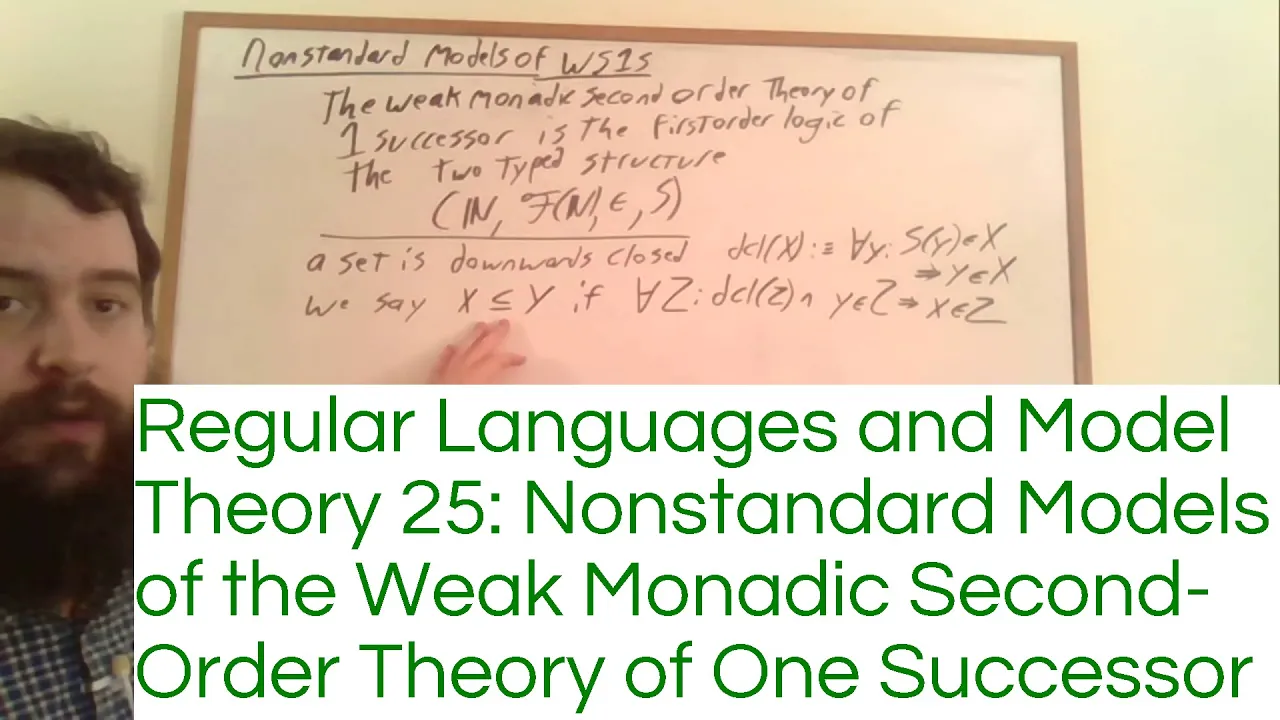 Nonstandard Models of WS1S
The weak monadic second order Theory of
1 successor is the first order logic of
the two typed structure
(ℕ, ℱ(ℕ), ∈, S)
a set is downwards closed dcl(X) :≡ ∀y: S(y)∈X
⇒ y∈X
we say x ≤ y if ∀Z: dcl(Z) ∧ y∈Z ⇒ x∈Z
Regular Languages and Model
Theory 25: Nonstandard Models
of the Weak Monadic Second-
Order Theory of One Successor